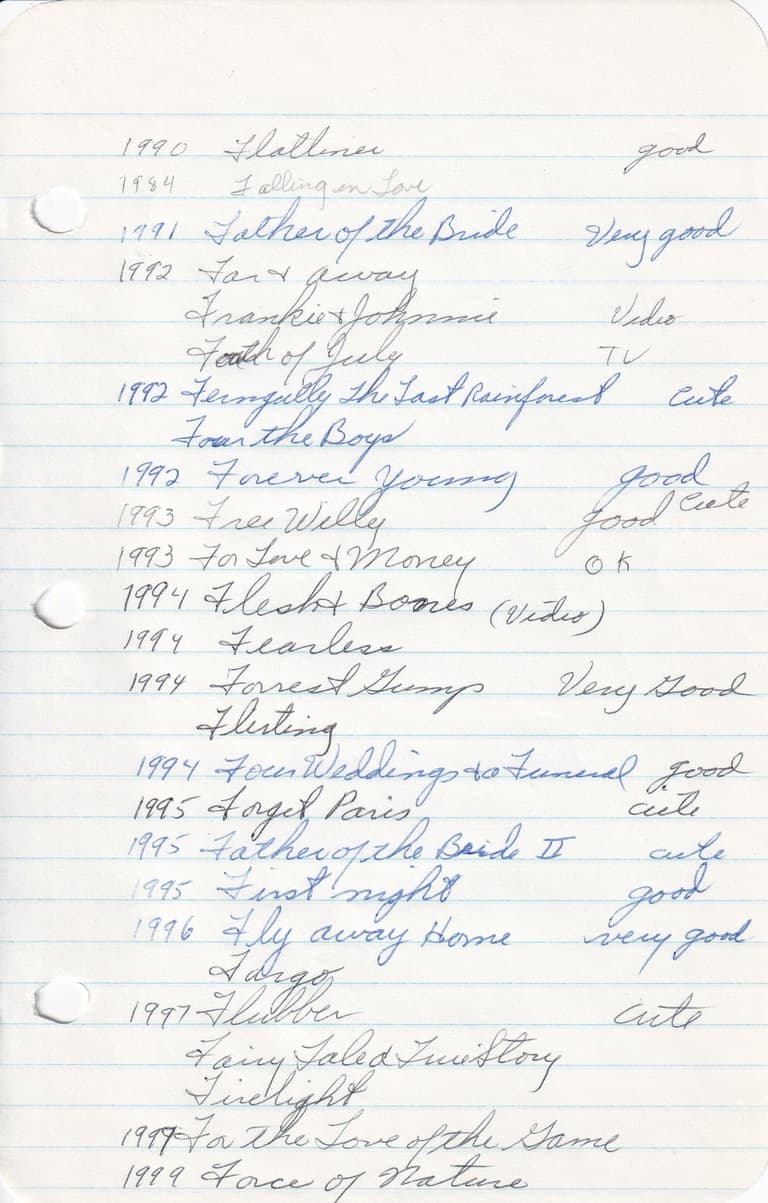 1990 Flatliner good
1984 Falling in Love
1991 Father of the Bride Very good
1992 Far & away
Frankie & Johnnie Video
Fouth of July TV
1992 Ferngully The Last Rainforest cute
Four the Boys
1992 Forever Young good
1993 Free Willy good cute
1993 For Love & Money OK
1994 Flesh & Bones (Video)
1994 Fearless
1994 Forrest Gump Very Good
Flirting
1994 Four Weddings & a Funeral good
1995 Forget Paris cute
1995 Father of the Bride II cute
1995 First night good
1996 Fly away Home very good
Fargo
1997 Flubber cute
Fairy Tale a True Story
Firelight
1999 For the Love of the Game
1999 Force of Nature